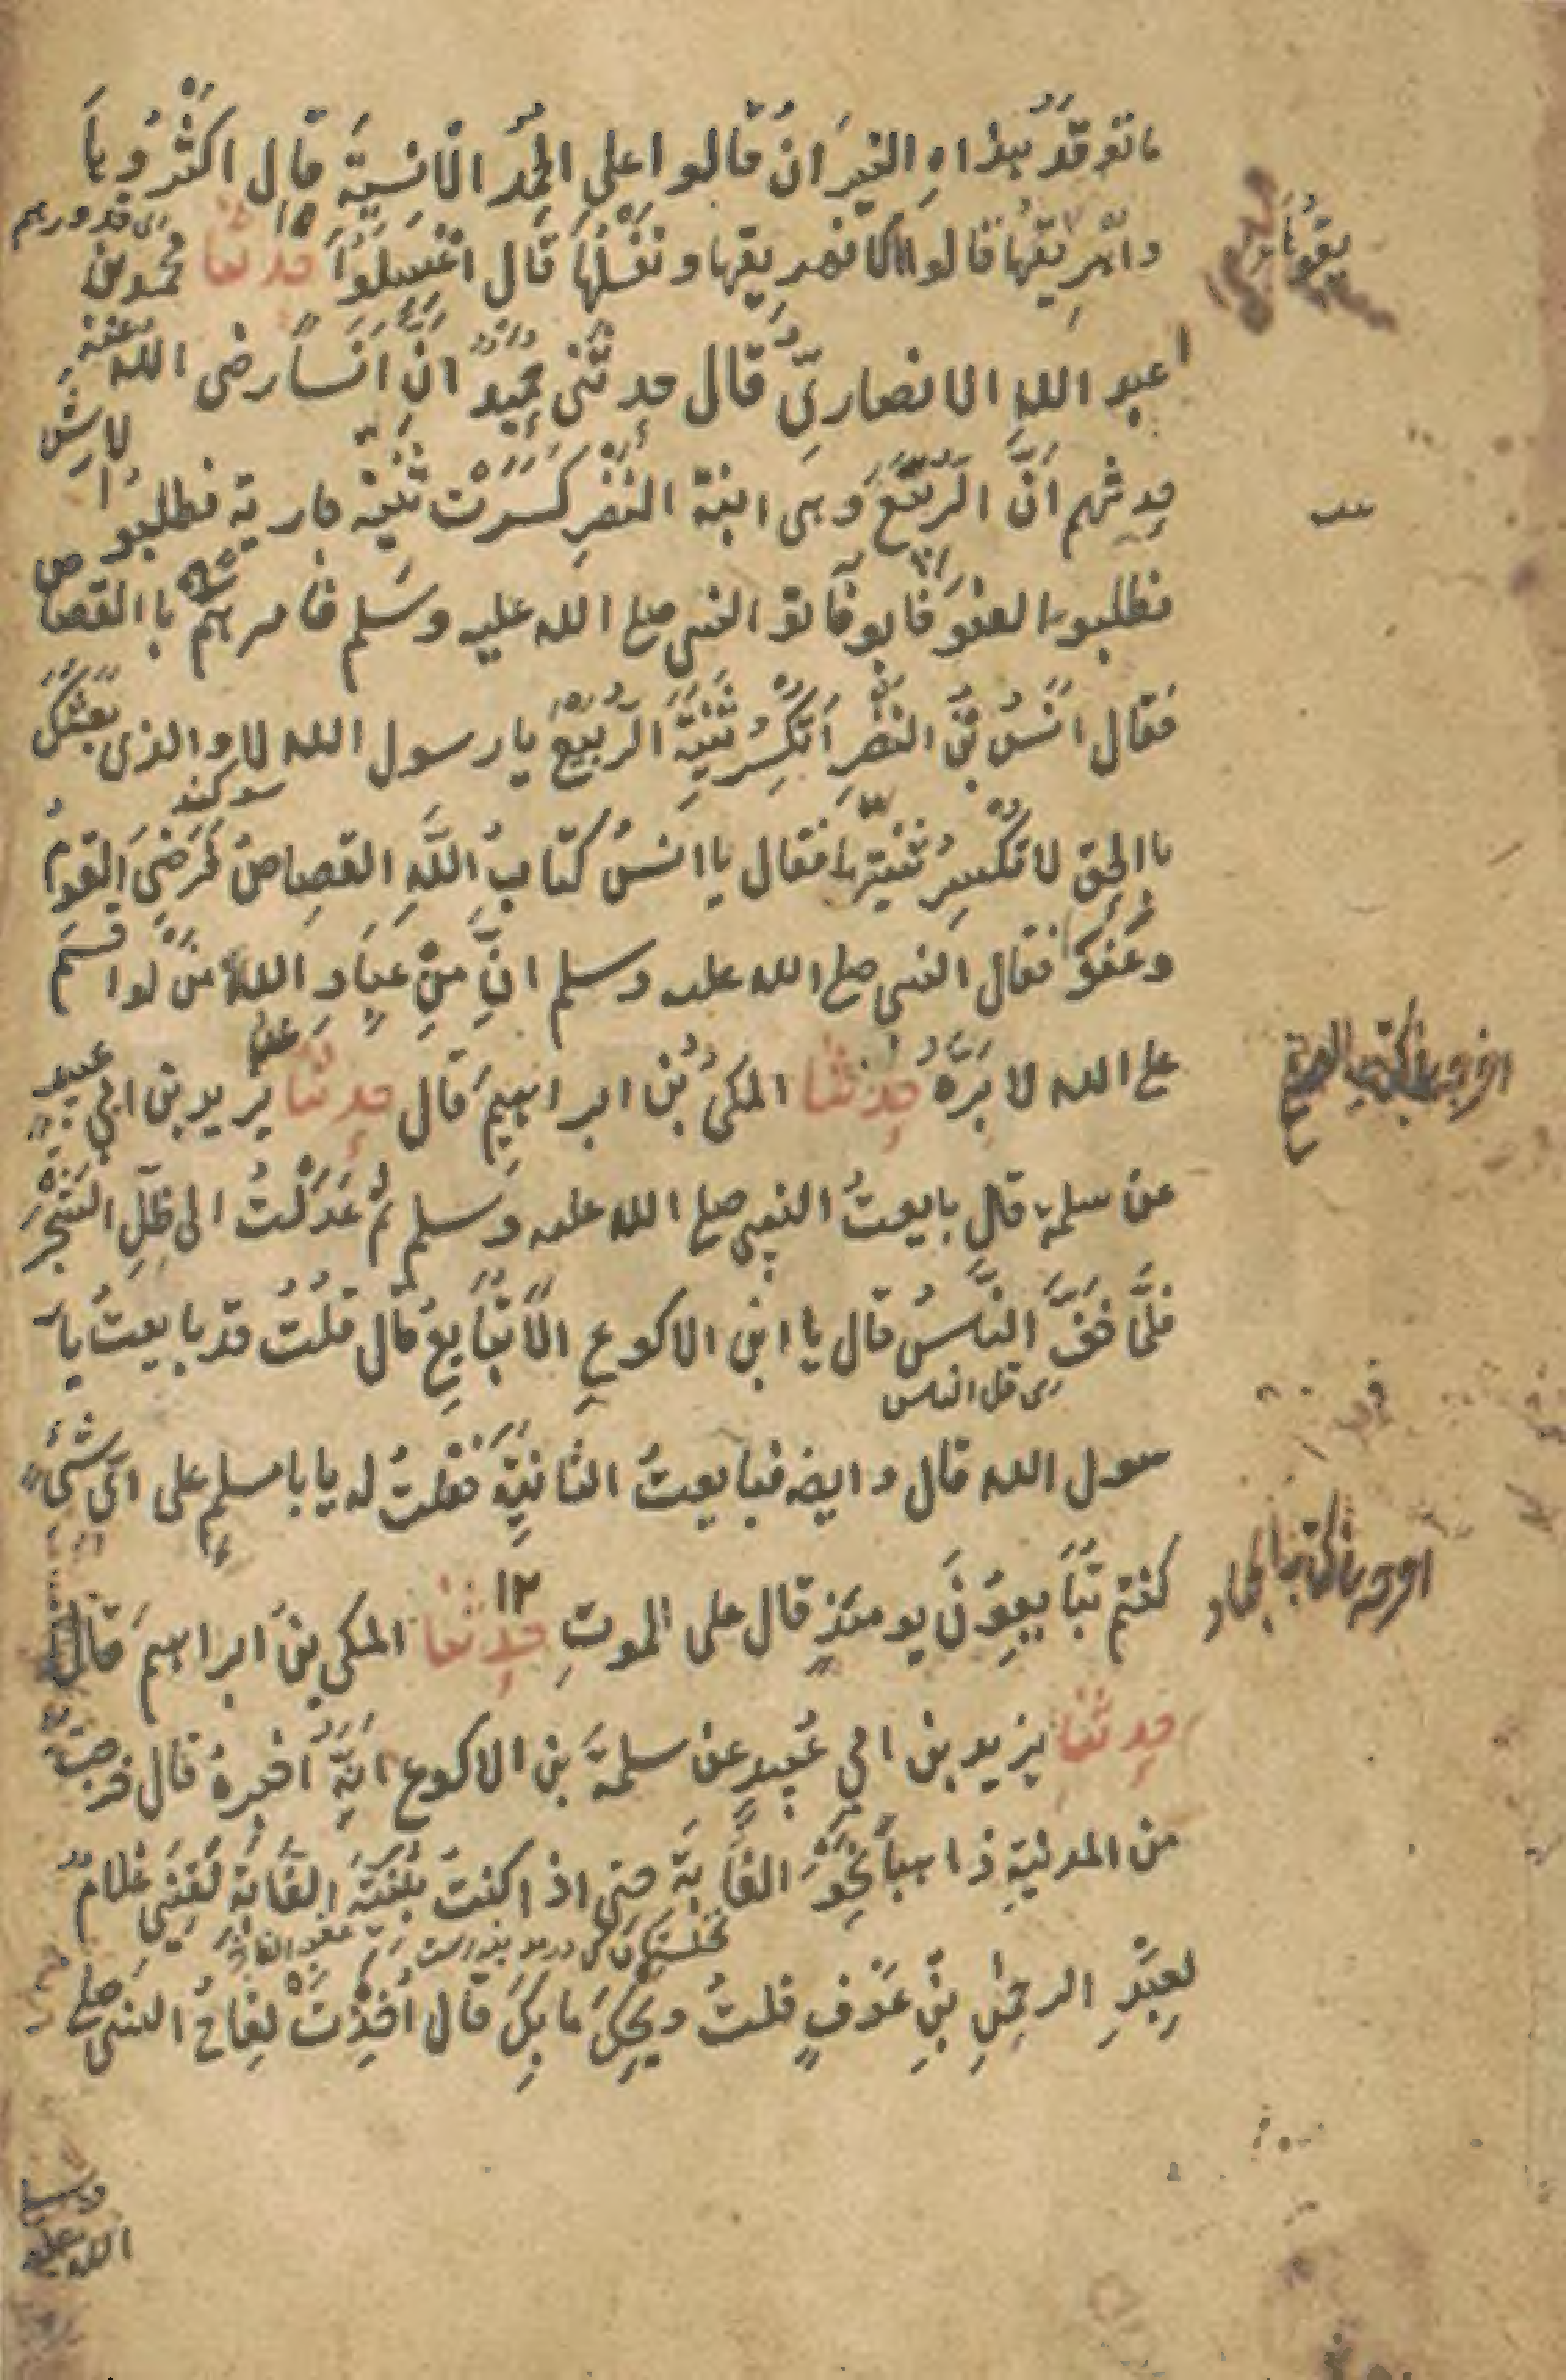 ما توقد بهذاهِ النيرانُ قالوا على الحُمُر الاَنسيَّة قال اكثْرُوبَا
واهْرِيقها قالوا الا نهريقها ونغْسلُهَا قال اغْسِلُوا حدثنا محمد بن
عبد اللهِ الانصاريُّ قال حدثني حُمَيدٌ انَّ انَسًا رضى الله عنه
حدثهم انَّ الرُّبَيِّعَ وهى ابنة النَّضْرِ كسَرَتْ ثنيّة جارية فطلبوا الارش
فطلبوا العفوَ فابو فاتو النبى صلع الله عليه وسَلم فامرهم با القصاص
فقال انسُ بنُ النضْرِ اَتُكْسَرُ ثنِيَّةُ الرُّبَيِّعْ يا رسول الله لا والذى بعثكَ
با الحق لا تُكْسرُ ثنيتها فقال يا انسُ كتابُ اللهِ القصاصُ فَرَضىَ القومُ
وعَفَوْا فقال النبى صلع الله عليه وسلم انَّ مِنْ عبادِ الله منْ لو اقسم
على الله لابرَّهُ حدثنا المكىُ بنُ ابراهيمَ قال حدثنا يزيد بن ابي عبيد
عن سلمة قال بايعتُ النبىَ صلع الله عليه وسلم ثم عَدَلْتُ الى ظلِ الشَجَرْ
فلمَّا خَفَّ النَّاسُ قال يا ابن الاكوعِ الاَ تُبَايعُ قال قلْتُ قد بايعتُ يا ر
ى قل الناس
سول الله قال وايضا فبايعتُ الثانيَّةَ فقلتُ له يا بامسلمٍ على اىِّ شىءٍ
كنتم تُبَايعُونَ يومئذٍ قال على الموتِ ١٢ حدثنا المكى بن ابراهيمَ قال
حدثنا يزيد بن ابي عُبيدٍ عن سلمةَ بن الاكوع انه اَخبرهُ قال خرجت
من المدينةِ ذاهباً نحوَ الغابة حتى اذا كنت بثنيَّة الغَابَة لَقِيَنى غلامٌ
لعِبْدِ الرحمٰنِ بنِ عَوْفٍ قلتُ ويحكَ مابِكَ قال اُخِذَتْ لِقاحُ النبى صلع
الله عليه
وسلم